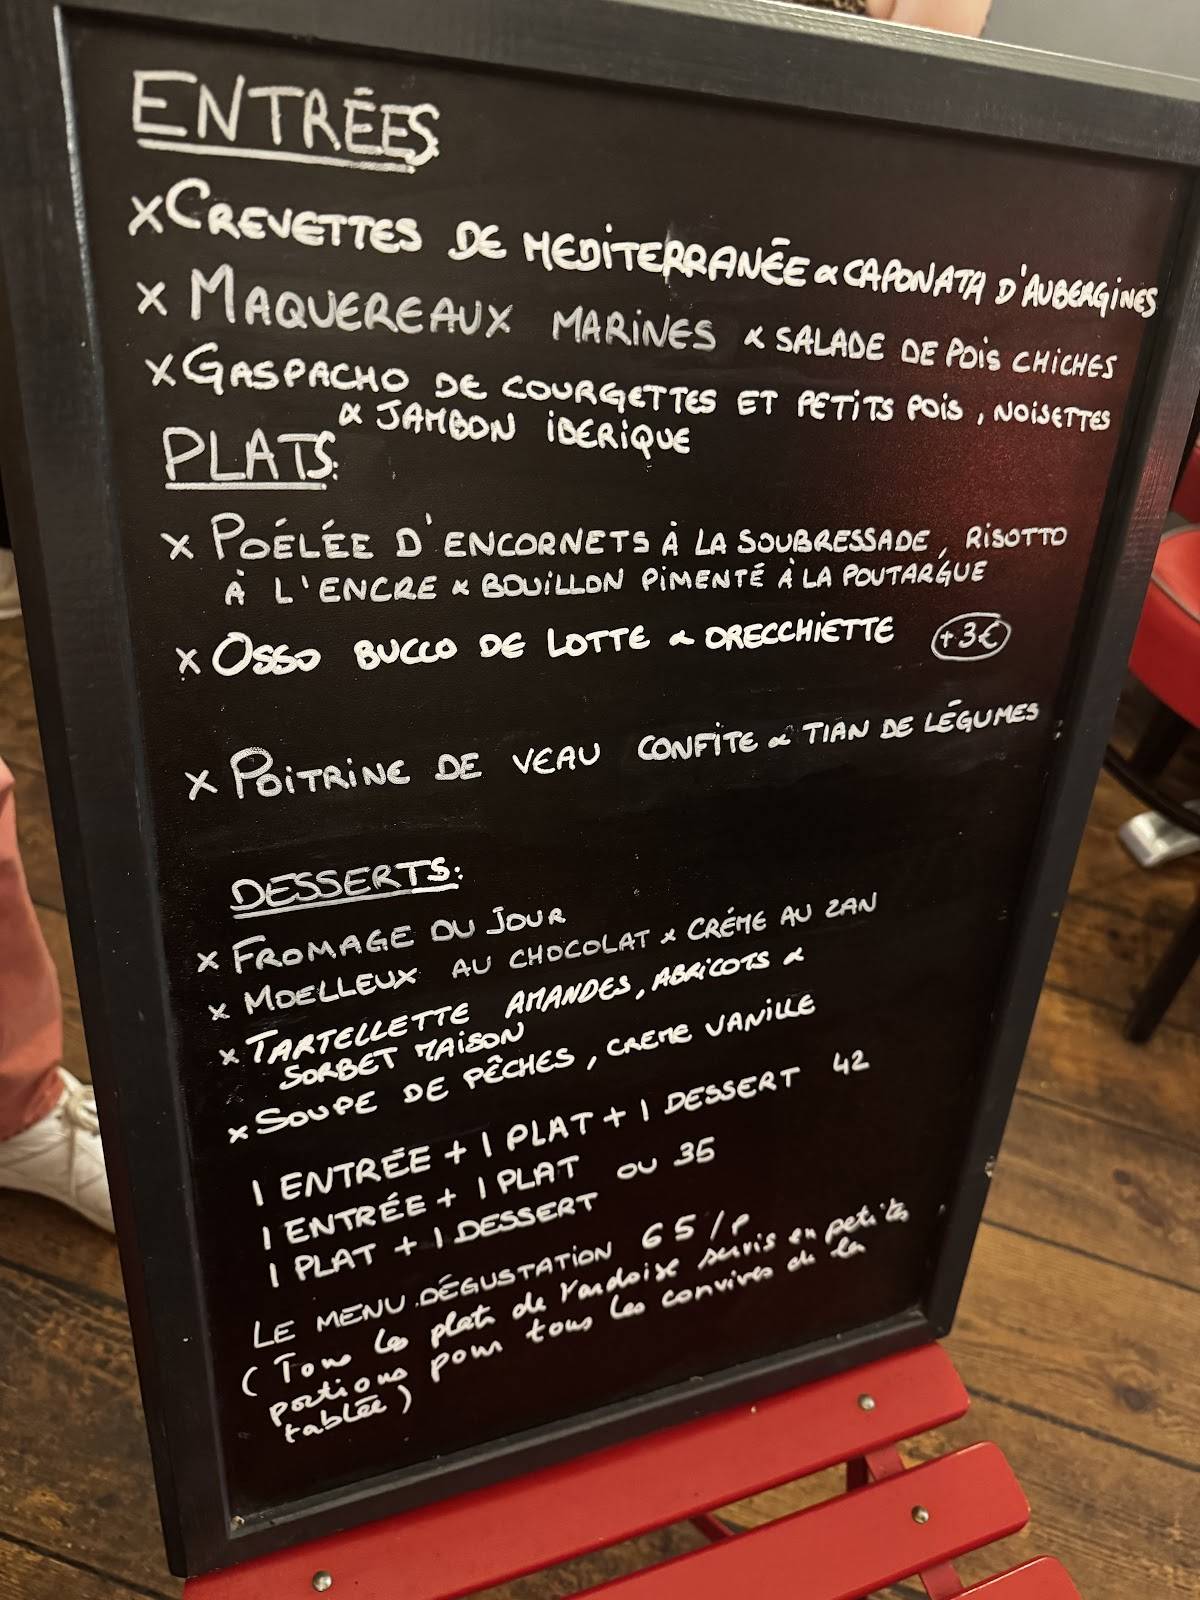 ENTRÉES
X CREVETTES DE MEDITERRANÉE & CAPONATA D'AUBERGINES
X MAQUEREAUX MARINES & SALADE DE POIS CHICHES
X GASPACHO DE COURGETTES ET PETITS POIS, NOISETTES
& JAMBON IBERIQUE
PLATS:
X POÉLÉE D'ENCORNETS À LA SOUBRESSADE, RISOTTO
À L'ENCRE & BOUILLON PIMENTÉ À LA POUTARGUE
X OSSO BUCCO DE LOTTE & ORECCHIETTE +3€
X POITRINE DE VEAU CONFITE & TIAN DE LÉGUMES
DESSERTS:
X FROMAGE DU JOUR
X MOELLEUX AU CHOCOLAT & CRÉME AU ZAN
X TARTELLETTE AMANDES, ABRICOTS &
SORBET MAISON
X SOUPE DE PÊCHES, CREME VANILLE
1 ENTRÉE + 1 PLAT + 1 DESSERT 42
1 ENTRÉE + 1 PLAT OU 36
1 PLAT + 1 DESSERT
LE MENU DÉGUSTATION 65/P
(Tous les plats de l'ardoise servis en petites
portions pour tous les convives de la
tablée)